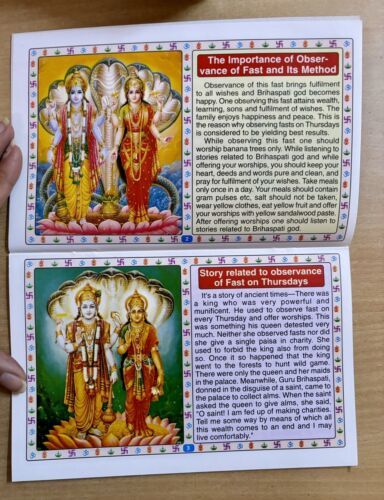 The Importance of Obser-
vance of Fast and Its Method
Observance of this fast brings fulfilment
to all wishes and Brihaspati God becomes
happy. One observing this fast attains wealth,
learning, sons and fulfilment of wishes. The
family enjoys happiness and peace. This is
the reason why observing fasts on Thursdays
is considered to be yielding best results.
While observing this fast one should
worship banana trees only. While listening to
stories related to Brihaspati god and while
offering your worships, you should keep your
heart, deeds and words pure and clean, and
pray for fulfilment of your wishes. Take meals
only once in a day. Your meals should contain
gram pulses etc, salt should not be taken,
wear yellow clothes, eat yellow fruit and offer
your worships with yellow sandalwood paste.
After offering worships one should listen to
stories related to Brihaspati god.
2
Story related to observance
of Fast on Thursdays
It's a story of ancient times—There was
a king who was very powerful and
munificent. He used to observe fast on
every Thursday and offer worships. This
was something his queen detested very
much. Neither she observed fasts nor did
she give a single paisa in charity. She
used to forbid the king also from doing
so. Once it so happened that the king
went to the forests to hunt wild game.
There were only the queen and her maids
in the palace. Meanwhile, Guru Brihaspati,
donned in the disguise of a saint, came to
the palace to collect alms. When the saint
asked the queen to give alms, she said,
"O saint! I am fed up of making charities.
Tell me some way by means of which all
this wealth comes to an end and I may
live comfortably."
3